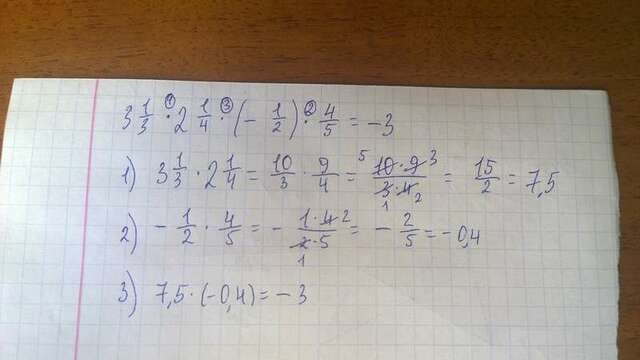 3 1/3 ·① 2 1/4 ·③ (- 1/2) ·② 4/5 = -3
1) 3 1/3 · 2 1/4 = 10/3 · 9/4 = ⁵10·9³/₁3·4₂ = 15/2 = 7,5
2) - 1/2 · 4/5 = - 1·4²/₁2·5 = - 2/5 = -0,4
3) 7,5 · (-0,4) = -3